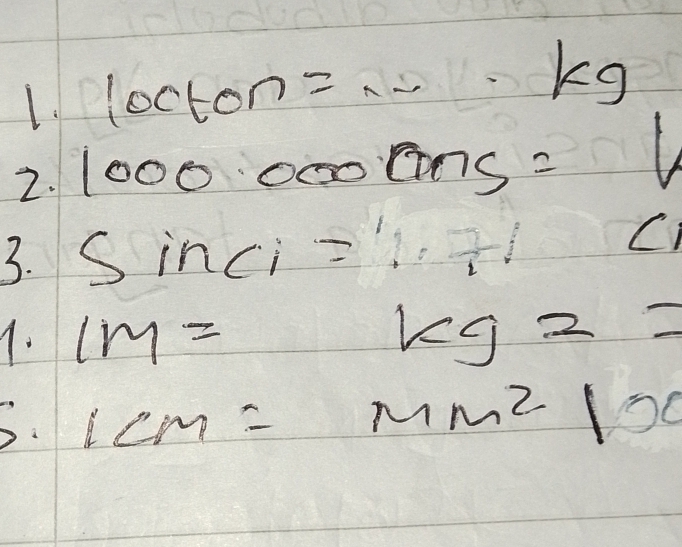 1. 10cton = ... . kg
2. 1000.000 Ons =
3. 5 inci =
1. 1M = kg 2 =
5. 1 CM = MM2 100